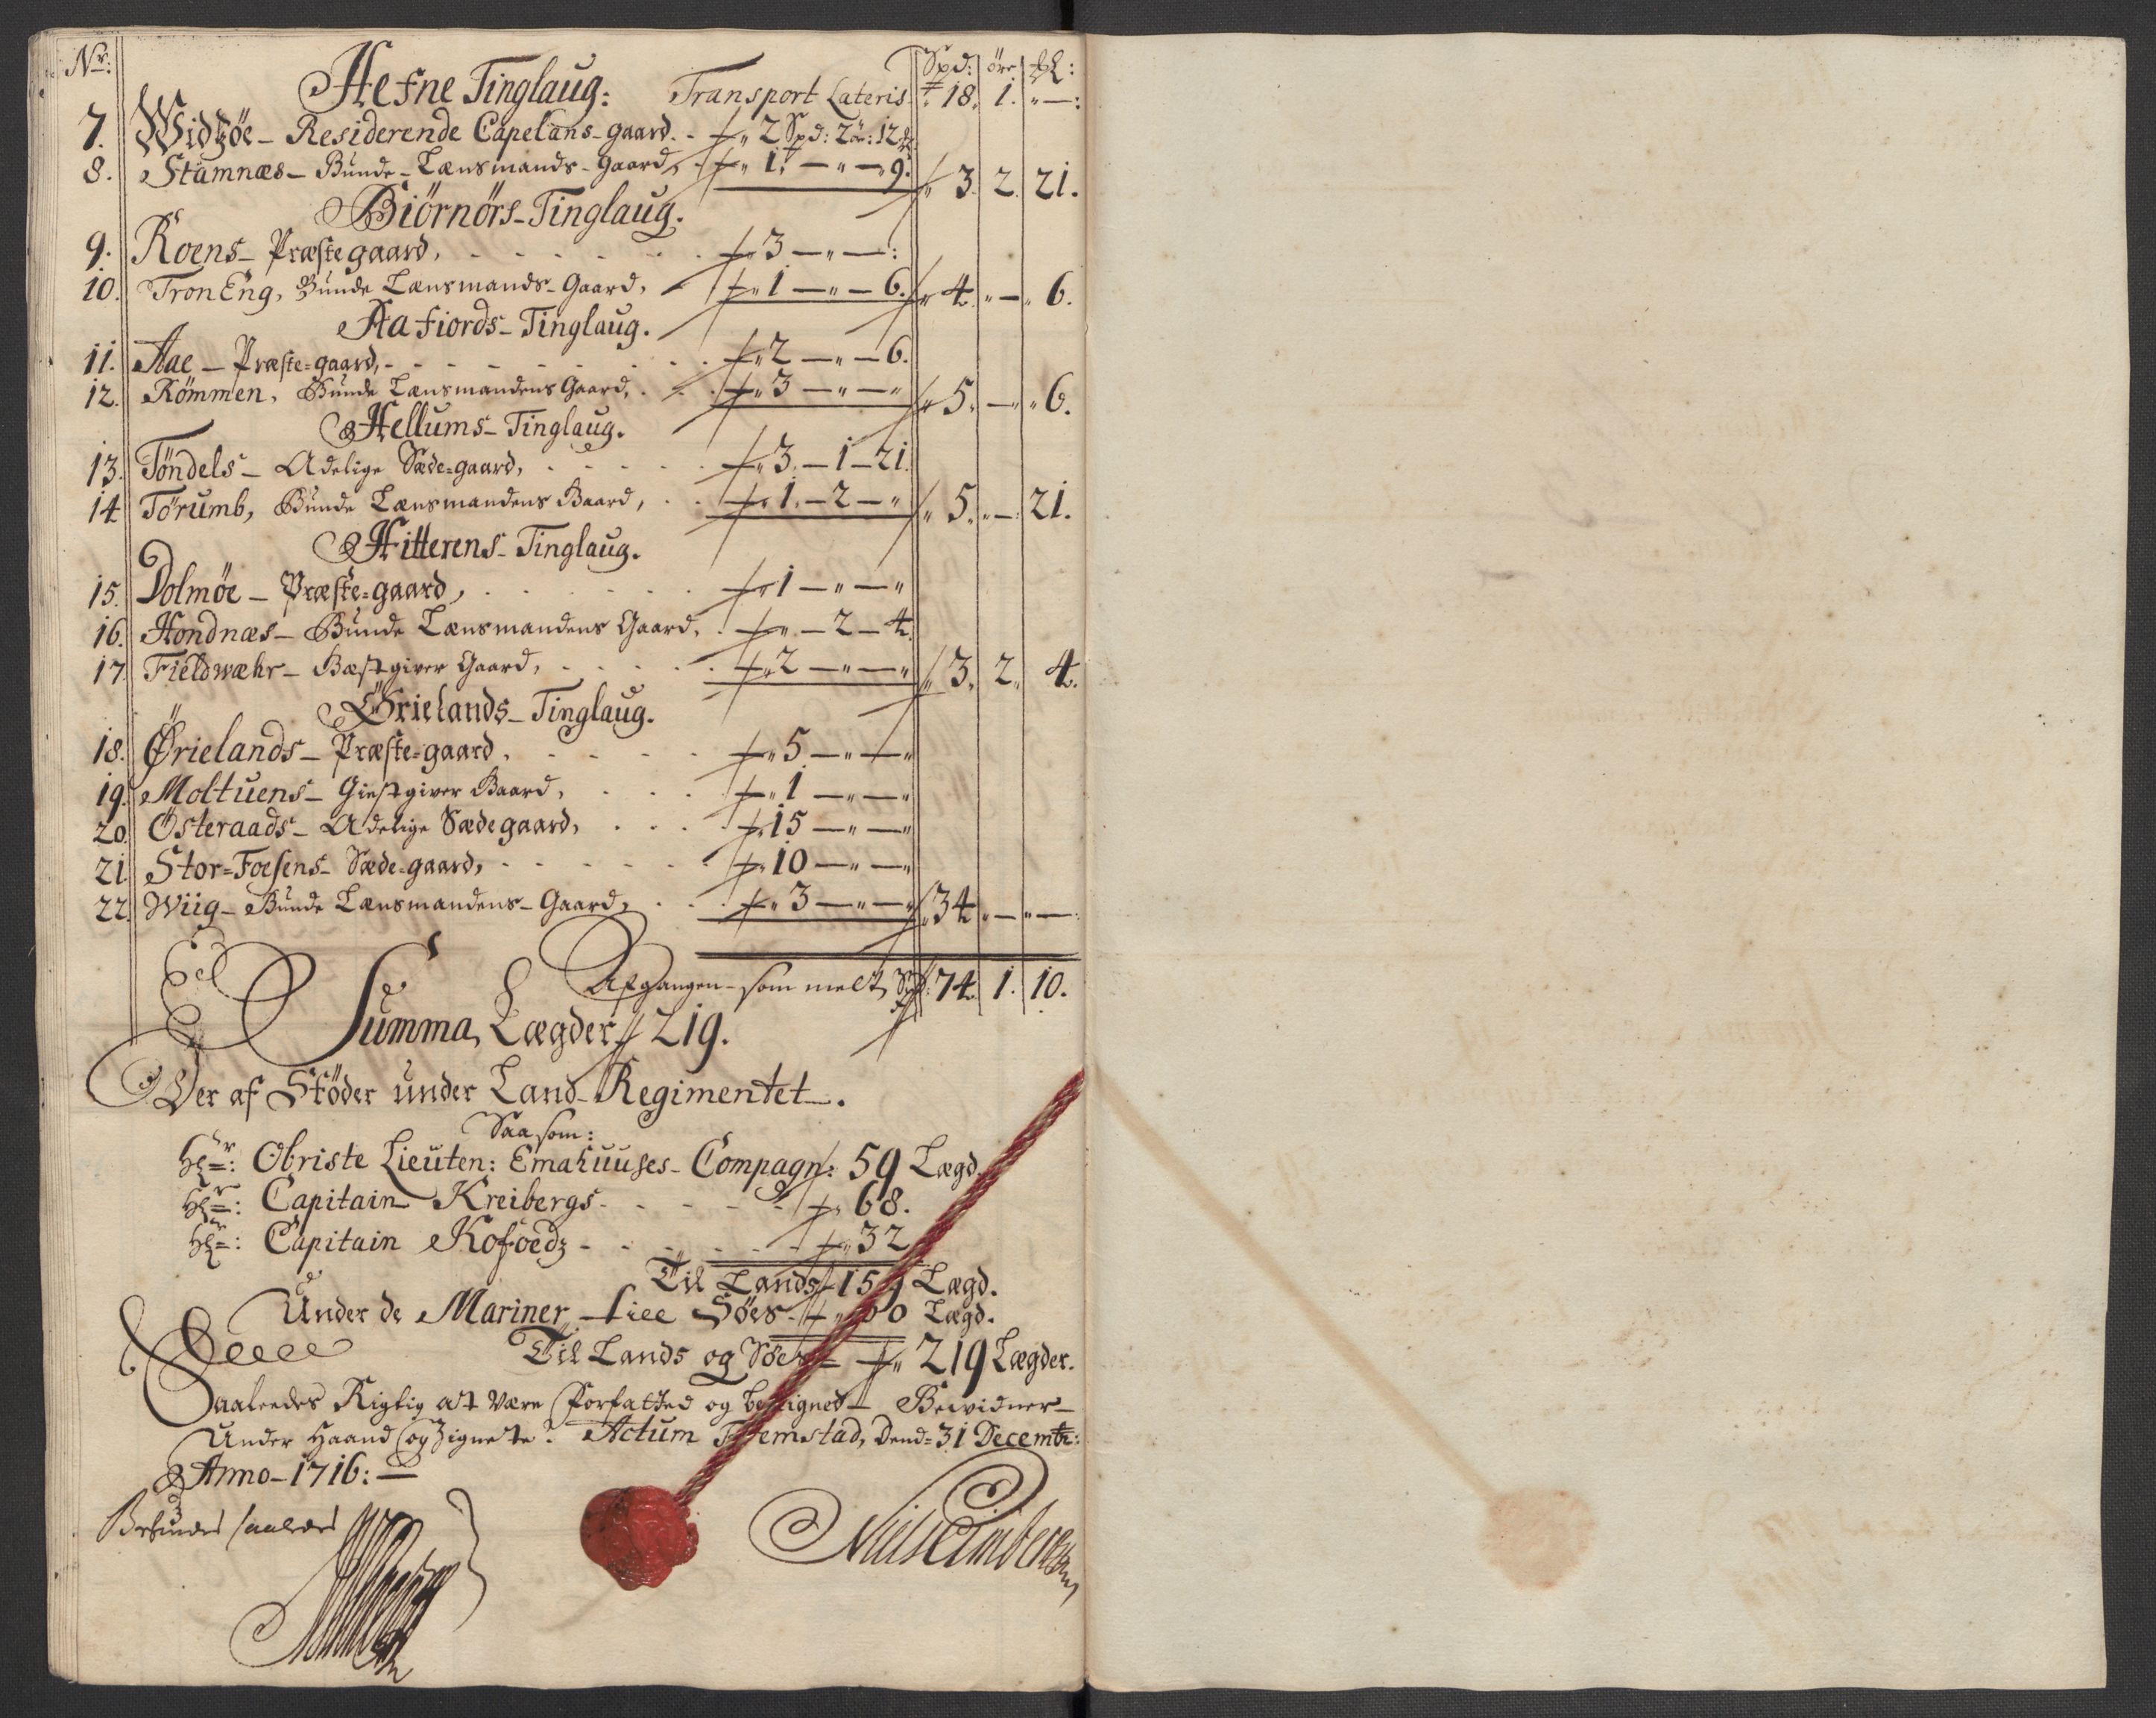 Nr: Spd: öre ꝳ:
Hefne Tinglaug: Transport Lateris 18. 1. „—:
7. Widzöe – Residerende Capelans-gaard. - „ 2 Spd: 2 ör: 12
8. Stamnæs – Bunde-Lænsmands-Gaard, „ 1. — „ — 9. „ 3. 2. 21.
Biörnörs-Tinglaug.
9. Roens – Præstegaard, „ 3 — „ —:
10. Tron Eng, Bunde Lænsmands-Gaard, „ 1 — „ — 6. „ 4. „ — „ 6.
Aafiords-Tinglaug.
11. Aae – Præste-gaard, „ 2 — „ — 6.
12. Römmen, Bunde Lænsmandens Gaard, „ 3 — „ — „ „ 5. — „ 6.
Hellums-Tinglaug.
13. Töndels – Adelige Sæde-gaard, „ 3. — 1 — 21.
14 Törumb, Bunde Lænsmandens Baard, „ 1. — 2 — „ „ 5. „ — 21.
Hitterens-Tinglaug.
15. Dolmöe – Præste-gaard, „ 1 — „ — „
16. Hondnæs – Bunde Lænsmandens Gaard, „ — 2 — 4.
17 Fieldwæhr – Bæstgiver Gaard, „ 2 — „ — „ „ 3. 2. 4.
Örielands-Tinglaug.
18. Ørielands – Præste-gaard. „ 5 — „ — „
19. Moltuens – Giestgiver Baard, „ 1 — „ — „
20. Østeraads – Adelige Sædegaard, „ 15 — „ — „
21 Stor-Foesens – Sæde-gaard, „ 10 — „ — „
22. Wiig – Bunde Lænsmandens-Gaard, „ 3 — „ — „ „ 34 „ — „ —
Afgangen – som melt, Spd: 74. 1. 10.
Summa, Lægder 219.
Der af Stöder under Land-Regimentet.
Saasom:
Hr: Obriste Lieuten: Emahuuses-Compagn: 59 Lægd.
Hr: Capitain Kreibergs - - - 68.
Hr: Capitain Kofoedz - - - 32
Til Lands 159 Lægd.
Under de Mariner – till Söes - „ 60 Lægd.
Til Lands og Söes - „ 219 Lægder.
Saaleedes Rigtig att være forfatted og beregnet – Bewidner
Under Haand og Zignete. Actum Fremstad, Dend 31 Decembr:
Anno – 1716: —
Befindes saaledes